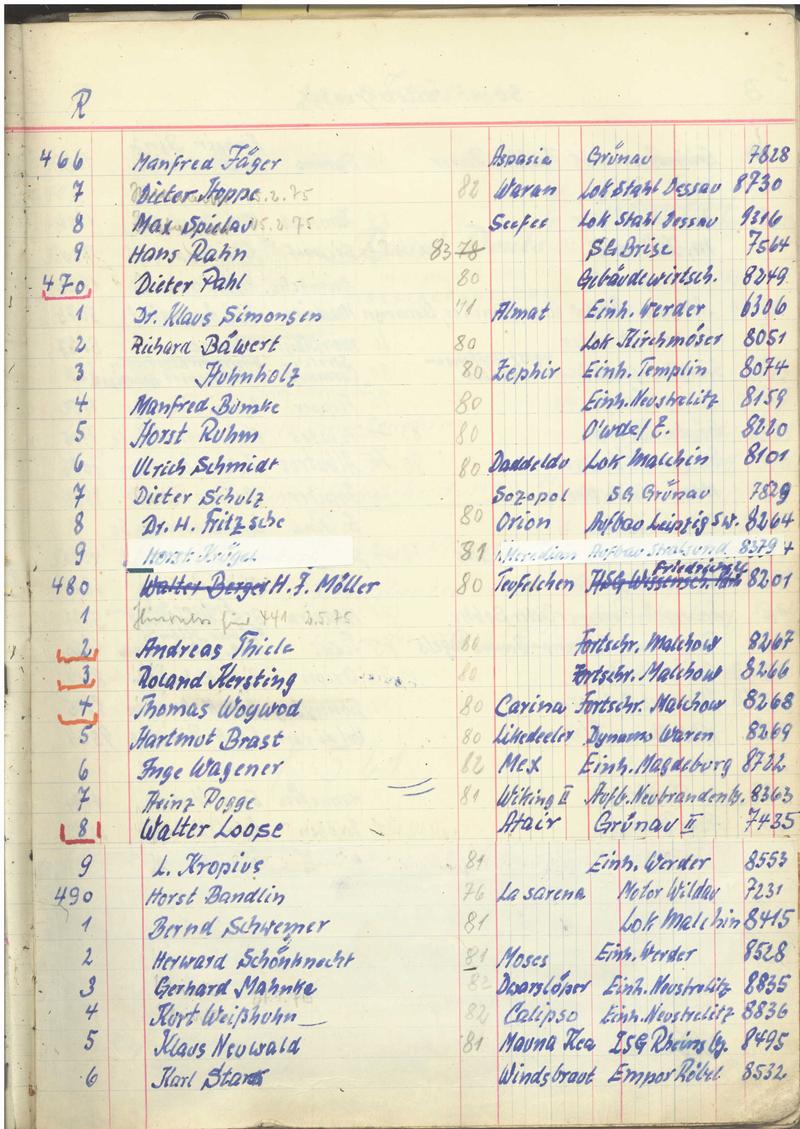 R
466 Manfred Jäger Aspasia Grünau 7828
7 Dieter Hoppe 15.2.75 82 Waran Lok Stahl Dessau 8730
8 Max Spielau 15.2.75 Seefee Lok Stahl Dessau 9316
9 Hans Rahn 83 78 SG Brise 7564
470 Dieter Pahl 80 Gebäudewirtsch. 8249
1 Dr. Klaus Simonsen 71 Almat Einh. Werder 6306
2 Richard Bäwert 80 Lok Kirchmöser 8051
3 Huhnholz 80 Zephir Einh. Templin 8074
4 Manfred Bumke 80 Einh. Neustrelitz 8159
5 Horst Ruhm 80 O'wde/E. 8220
6 Ulrich Schmidt 80 Daddeldu Lok Malchin 8101
7 Dieter Schulz Sozopol SG Grünau 7829
8 Dr. H. Fritzsche 80 Orion Aufbau Leipzig Sw. 8264
9 Horst Krügel 81 Meridian Aufbau Stralsund 8379
480 Walter Berger H. J. Möller 80 Teufelchen HSG Wissensch. 8201
1 für 441 2.5.75
2 Andreas Thiele 80 Fortschr. Malchow 8267
3 Roland Kersting 80 Fortschr. Malchow 8266
4 Thomas Woywod 80 Carina Fortschr. Malchow 8268
5 Hartmut Brast 80 Likedeeler Dynamo Waren 8269
6 Inge Wagener 82 Mex Einh. Magdeburg 8722
7 Heinz Pogge 81 Wiking II Aufb. Neubrandenbg. 8363
8 Walter Loose Atair Grünau II 7435
9 L. Kropius 81 Einh. Werder 8553
490 Horst Bandlin 76 La sarena Motor Wildau 7231
1 Bernd Schwemer 81 Lok Malchin 8415
2 Herward Schönknecht 81 Moses Einh. Werder 8528
3 Gerhard Mahnke 82 Dwarslöper Einh. Neustrelitz 8835
4 Kurt Weißhuhn 82 Calipso Einh. Neustrelitz 8836
5 Klaus Neuwald 81 Mauna Kea ZSG Rheinsbg. 8495
6 Karl Stark Windsbraut Empor Röbel 8532